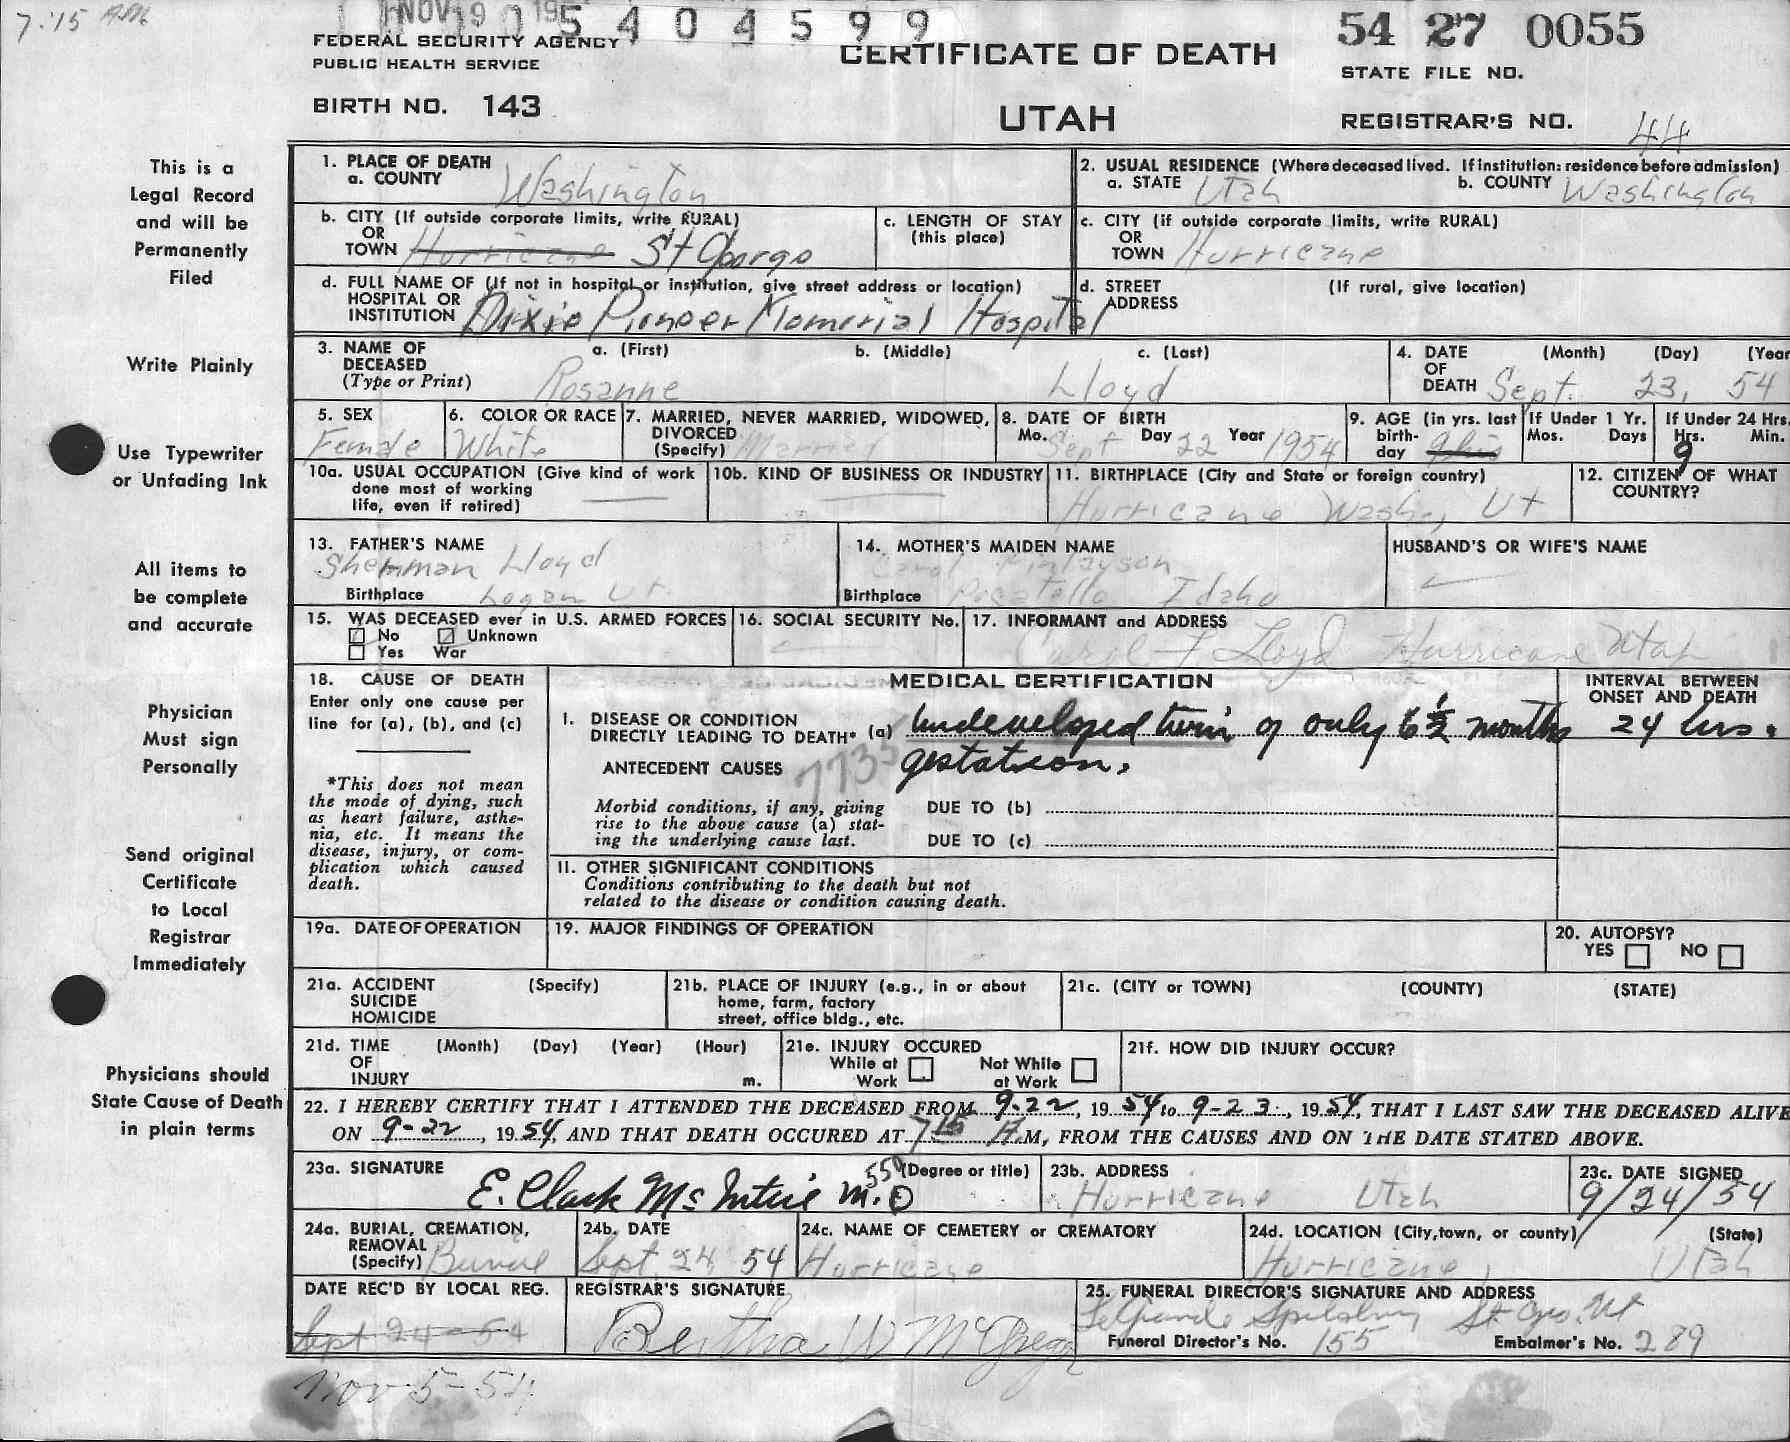 7:15 AM
NOV 19 0 195 4 0 4 5 9 9
54 27 0055
FEDERAL SECURITY AGENCY
PUBLIC HEALTH SERVICE
CERTIFICATE OF DEATH
STATE FILE NO.
BIRTH NO. 143
UTAH
REGISTRAR'S NO. 44
This is a
Legal Record
and will be
Permanently
Filed
Write Plainly
Use Typewriter
or Unfading Ink
All items to
be complete
and accurate
Physician
Must sign
Personally
Send original
Certificate
to Local
Registrar
Immediately
Physicians should
State Cause of Death
in plain terms
1. PLACE OF DEATH
a. COUNTY Washington
2. USUAL RESIDENCE (Where deceased lived. If institution: residence before admission)
a. STATE Utah b. COUNTY Washington
b. CITY (If outside corporate limits, write RURAL)
OR
TOWN Hurricane St George
c. LENGTH OF STAY
(this place)
c. CITY (if outside corporate limits, write RURAL)
OR
TOWN Hurricane
d. FULL NAME OF (If not in hospital or institution, give street address or location)
HOSPITAL OR
INSTITUTION Dixie Pioneer Memorial Hospital
d. STREET (If rural, give location)
ADDRESS
3. NAME OF DECEASED (Type or Print)
a. (First) b. (Middle) c. (Last)
Rosanne Lloyd
4. DATE (Month) (Day) (Year
OF
DEATH Sept. 23, 54
5. SEX
Female
6. COLOR OR RACE
White
7. MARRIED, NEVER MARRIED, WIDOWED,
DIVORCED
(Specify) Married
8. DATE OF BIRTH
Mo. Sept Day 22 Year 1954
9. AGE (in yrs. last
birth-
day 9hrs
If Under 1 Yr.
Mos. Days
If Under 24 Hrs.
Hrs. Min.
9
10a. USUAL OCCUPATION (Give kind of work
done most of working
life, even if retired)
10b. KIND OF BUSINESS OR INDUSTRY
11. BIRTHPLACE (City and State or foreign country)
Hurricane Wash., Ut
12. CITIZEN OF WHAT
COUNTRY?
13. FATHER'S NAME
Sherman Lloyd
Birthplace Logan Ut.
14. MOTHER'S MAIDEN NAME
Carol Finlayson
Birthplace Pocatello Idaho
HUSBAND'S OR WIFE'S NAME
15. WAS DECEASED ever in U.S. ARMED FORCES
No Unknown
Yes War
16. SOCIAL SECURITY No.
17. INFORMANT and ADDRESS
Carol F Lloyd Hurricane Utah
18. CAUSE OF DEATH
Enter only one cause per
line for (a), (b), and (c)
*This does not mean
the mode of dying, such
as heart failure, asthe-
nia, etc. It means the
disease, injury, or com-
plication which caused
death.
MEDICAL CERTIFICATION
INTERVAL BETWEEN
ONSET AND DEATH
I. DISEASE OR CONDITION
DIRECTLY LEADING TO DEATH* (a) Undeveloped twin of only 6 1/2 months 24 hrs.
gestation.
ANTECEDENT CAUSES 7735
Morbid conditions, if any, giving
rise to the above cause (a) stat-
ing the underlying cause last.
DUE TO (b)
DUE TO (c)
11. OTHER SIGNIFICANT CONDITIONS
Conditions contributing to the death but not
related to the disease or condition causing death.
19a. DATE OF OPERATION
19. MAJOR FINDINGS OF OPERATION
20. AUTOPSY?
YES NO
21a. ACCIDENT (Specify)
SUICIDE
HOMICIDE
21b. PLACE OF INJURY (e.g., in or about
home, farm, factory
street, office bldg., etc.
21c. (CITY or TOWN) (COUNTY) (STATE)
21d. TIME (Month) (Day) (Year) (Hour)
OF
INJURY m.
21e. INJURY OCCURED
While at Work Not While at Work
21f. HOW DID INJURY OCCUR?
22. I HEREBY CERTIFY THAT I ATTENDED THE DECEASED FROM 9-22, 1954 to 9-23, 1954, THAT I LAST SAW THE DECEASED ALIVE
ON 9-22, 1954, AND THAT DEATH OCCURED AT 7 15 A.M, FROM THE CAUSES AND ON THE DATE STATED ABOVE.
23a. SIGNATURE (Degree or title)
E. Clark McIntire M.D 550
23b. ADDRESS
Hurricane Utah
23c. DATE SIGNED
9/24/54
24a. BURIAL, CREMATION,
REMOVAL
(Specify) Burial
24b. DATE
Sept 24 54
24c. NAME OF CEMETERY or CREMATORY
Hurricane
24d. LOCATION (City, town, or county) (State)
Hurricane, Utah
DATE REC'D BY LOCAL REG.
Sept 24-54
REGISTRAR'S SIGNATURE
Bertha W McGregor
25. FUNERAL DIRECTOR'S SIGNATURE AND ADDRESS
Spilsbury St Geo. Ut
Funeral Director's No. 155 Embalmer's No. 289
Nov-5-54